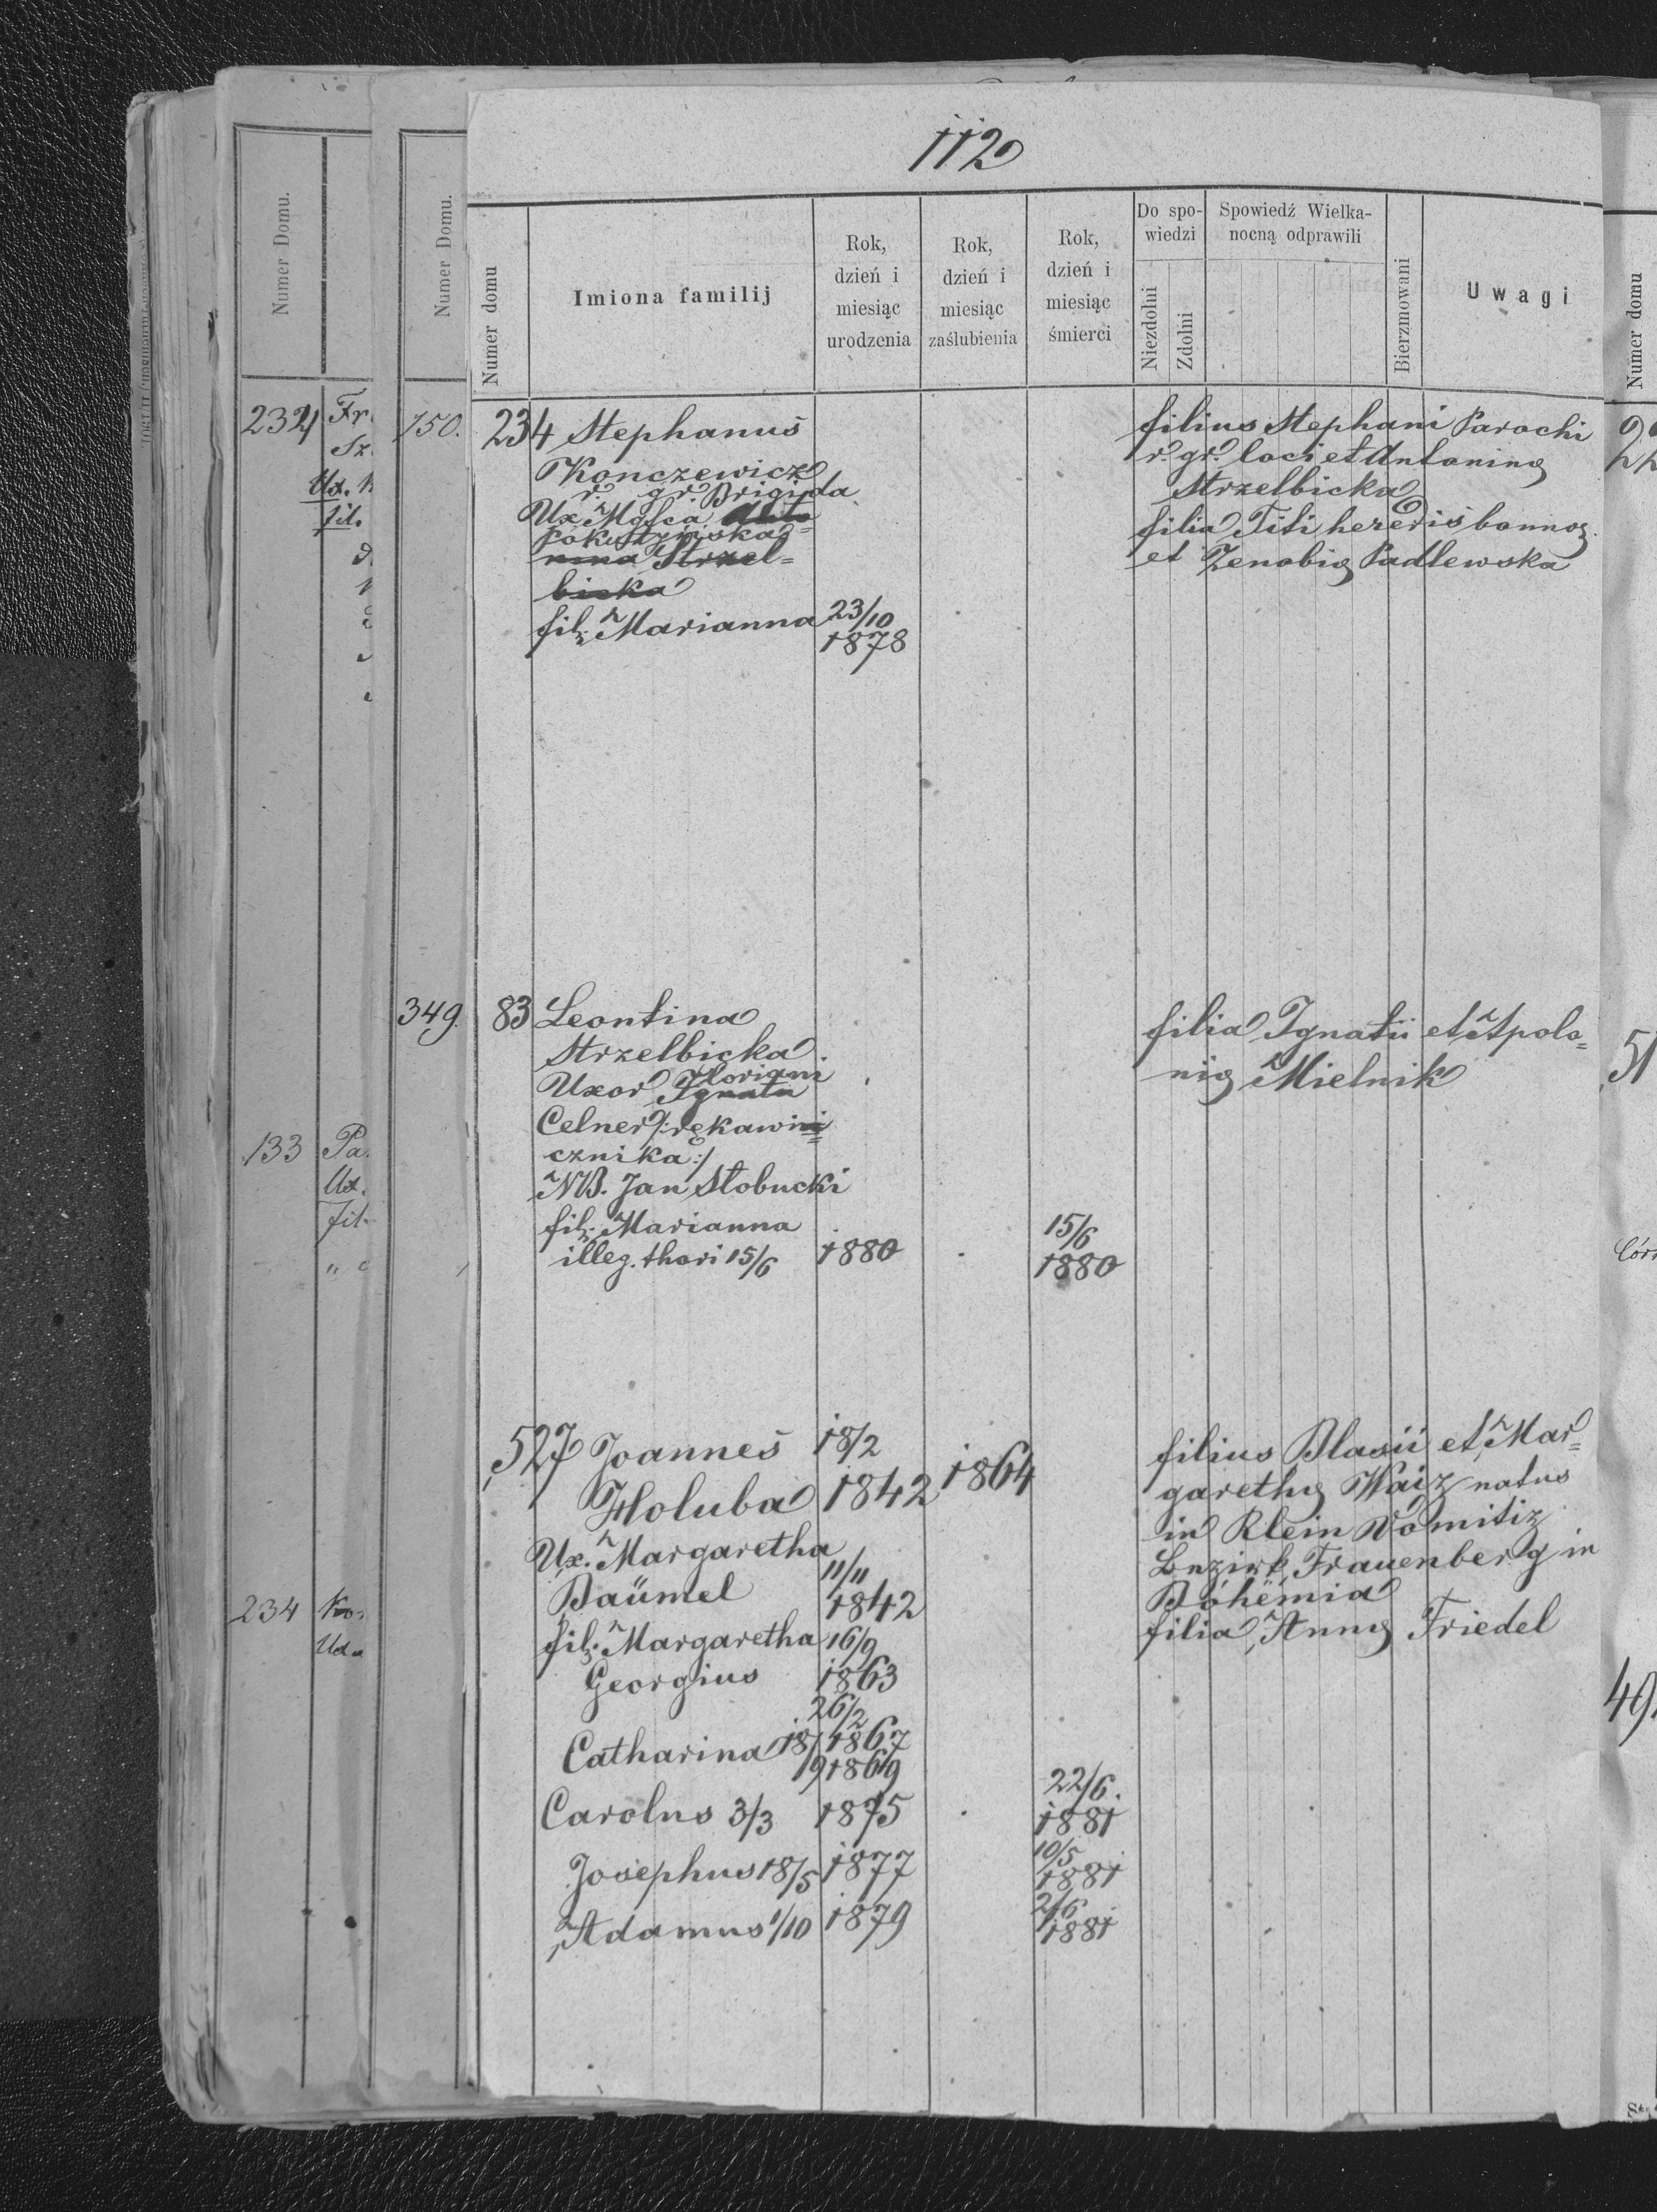 112
Numer Domu.
Numer Domu.
Numer domu
Imiona familij
Rok,
dzień i
miesiąc
urodzenia
Rok,
dzień i
miesiąc
zaślubienia
Rok,
dzień i
miesiąc
śmierci
Do spo-
wiedzi
Niezdolni
Zdolni
Spowiedź Wielka-
nocną odprawili
Bierzmowani
Uwagi
Numer domu
232
Fr.
Sz.
Ux.
fil.
133 Pa.
Ux.
fil.
234
150.
349.
234 Stephanus
Konczewicz
r. gr. Brigida
Ux.
bicka
fil. Marianna 23/10
1878
filius Stephani Parochi
r. gr. loci et Antoninę
Strzelbicka
filia Titi heredis bonnoq
et Zenobię Padlewska
83 Leontina
Strzelbicka
Floriani
Uxor Ignatii
Celner /:rękawi=
cznika:/
NB. Jan Słobucki
fil. Marianna
illeg. thori 15/6 1880
15/6
1880
filia Ignatii et Apolo=
nię Mielnik
527 Joannes 18/2
Holuba 1842 1864
Ux. Margaretha
11/11
Baümel 1842
fil. Margaretha 16/9
Georgius 1863
26/2
Catharina 18/ 1867
/9 1869
Carolus 3/3 1875
22/6.
1881
Josephus 18/5 1877
10/5
1881
Adamus 1/10 1879
2/6
1881
filius Blasii et Mar=
garethę Waiz natus
in Klein Womitiz
Bezirk Frauenberg in
Bohemia
filia Annę Friedel
51
Córk
49.